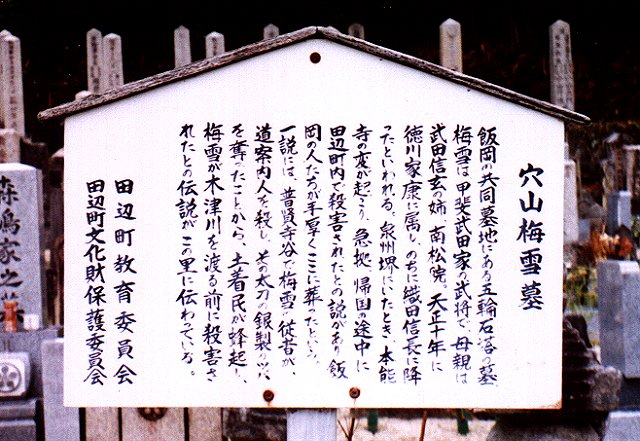 穴山梅雪墓
飯岡の共同墓地にある五輪石塔の墓
梅雪は甲斐武田家の武将で、母親は
武田信玄の姉、南松院。天正十年に
徳川家康に属し、のちに織田信長に降
ったといわれる。泉州堺にいたとき、本能
寺の変が起こり、急拠帰国の途中に
田辺町内で殺害されたとの説があり飯
岡の人たちが手厚くここに葬ったという。
一説には、普賢寺谷で梅雪の従者が、
道案内人を殺し、その太刀の銀製のツバ
を奪ったことから、土着民が蜂起し、
梅雪が木津川を渡る前に殺害さ
れたとの伝説がこの里に伝わっている。
田辺町教育委員会
田辺町文化財保護委員会
森嶋家之